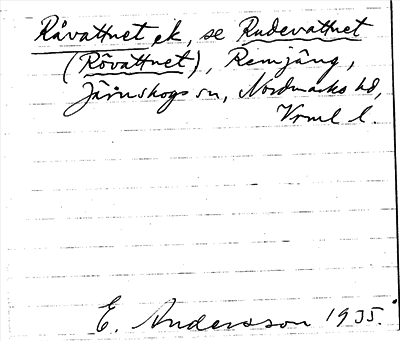 Råvattnet, ek, se Rudevattnet
(Rövattnet), Remjäng,
Järnskogs sn, Nordmarks hd,
Vrml l.
E. Andersson 1935.